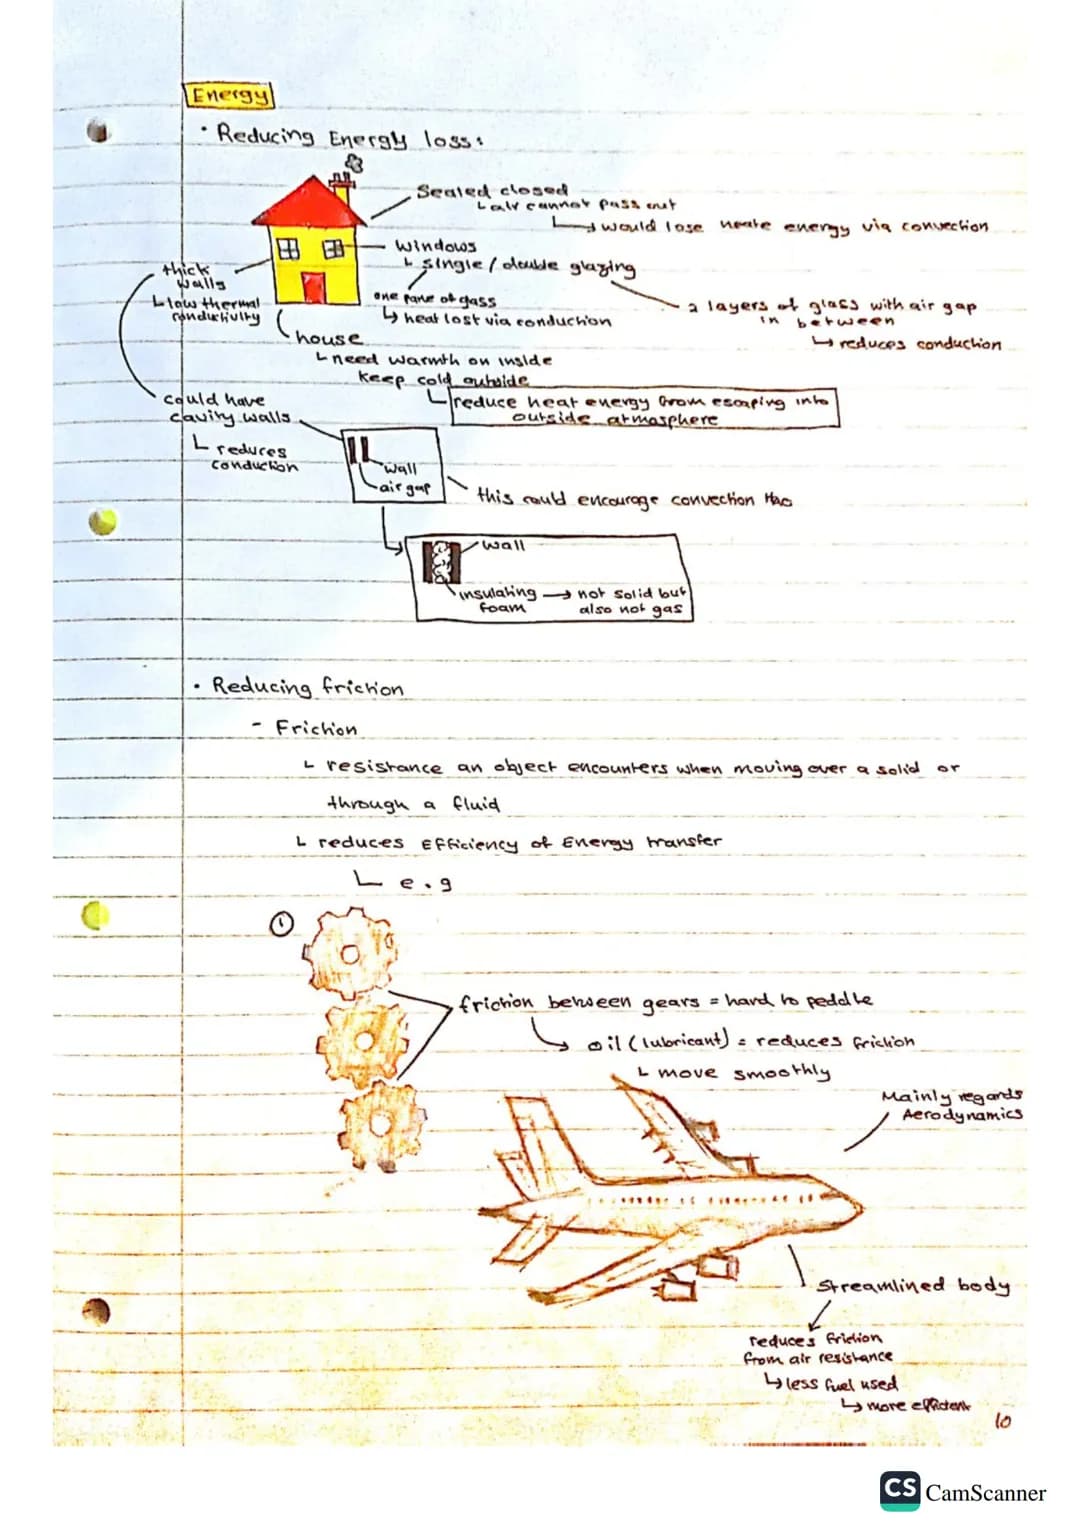 Energy
• Reducing Energy loss:
Sealed closed
air cannot pass out
would lose heate energy via convection
windows
single / double glazing
thick
walls
low thermal
conductivity
one pane of gass
heat lost via conduction
2 layers of glass with air gap
in between
reduces conduction
house
need warmth on inside
keep cold outside
reduce heat energy from escaping into
outside atmosphere
could have
cavity walls
reduces
conduction
wall
air gap
this could encourage convection
wall
insulating → not solid but
foam also not gas
• Reducing friction
- Friction
resistance an object encounters when moving over a solid or
through a fluid
reduces Efficiency of Energy transfer
e.g
1
friction between gears = hard to peddle
oil (lubricant) = reduces friction
move smoothly
Mainly regards
Aerodynamics
Streamlined body
reduces friction
from air resistance
less fuel used
more efficient
10
CS CamScanner